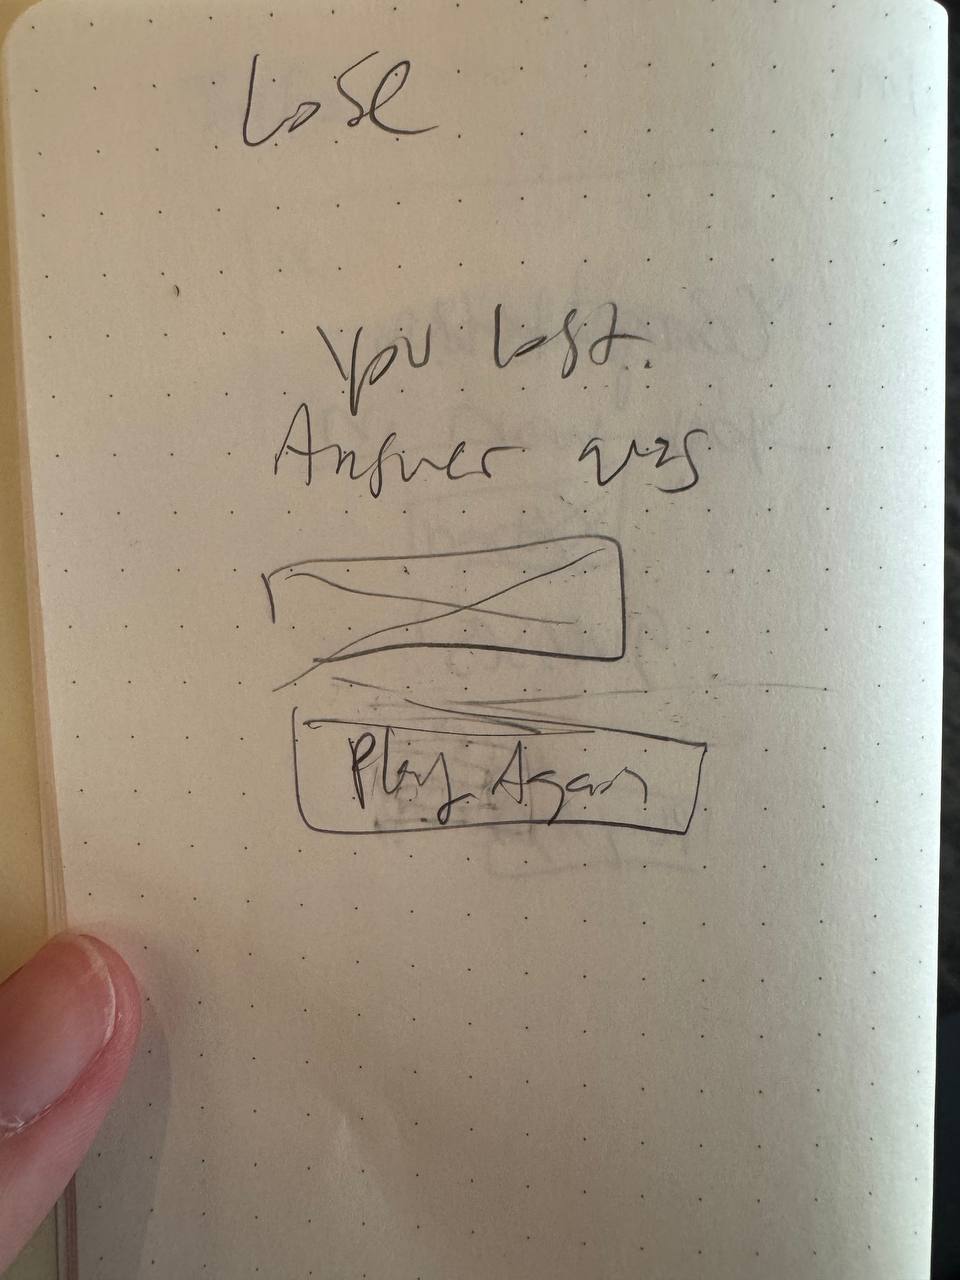 Lose
You lost.
Answer was
Play Again